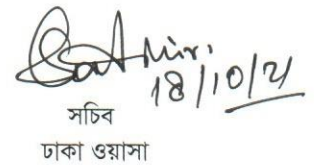 18/10/21
সচিব
ঢাকা ওয়াসা